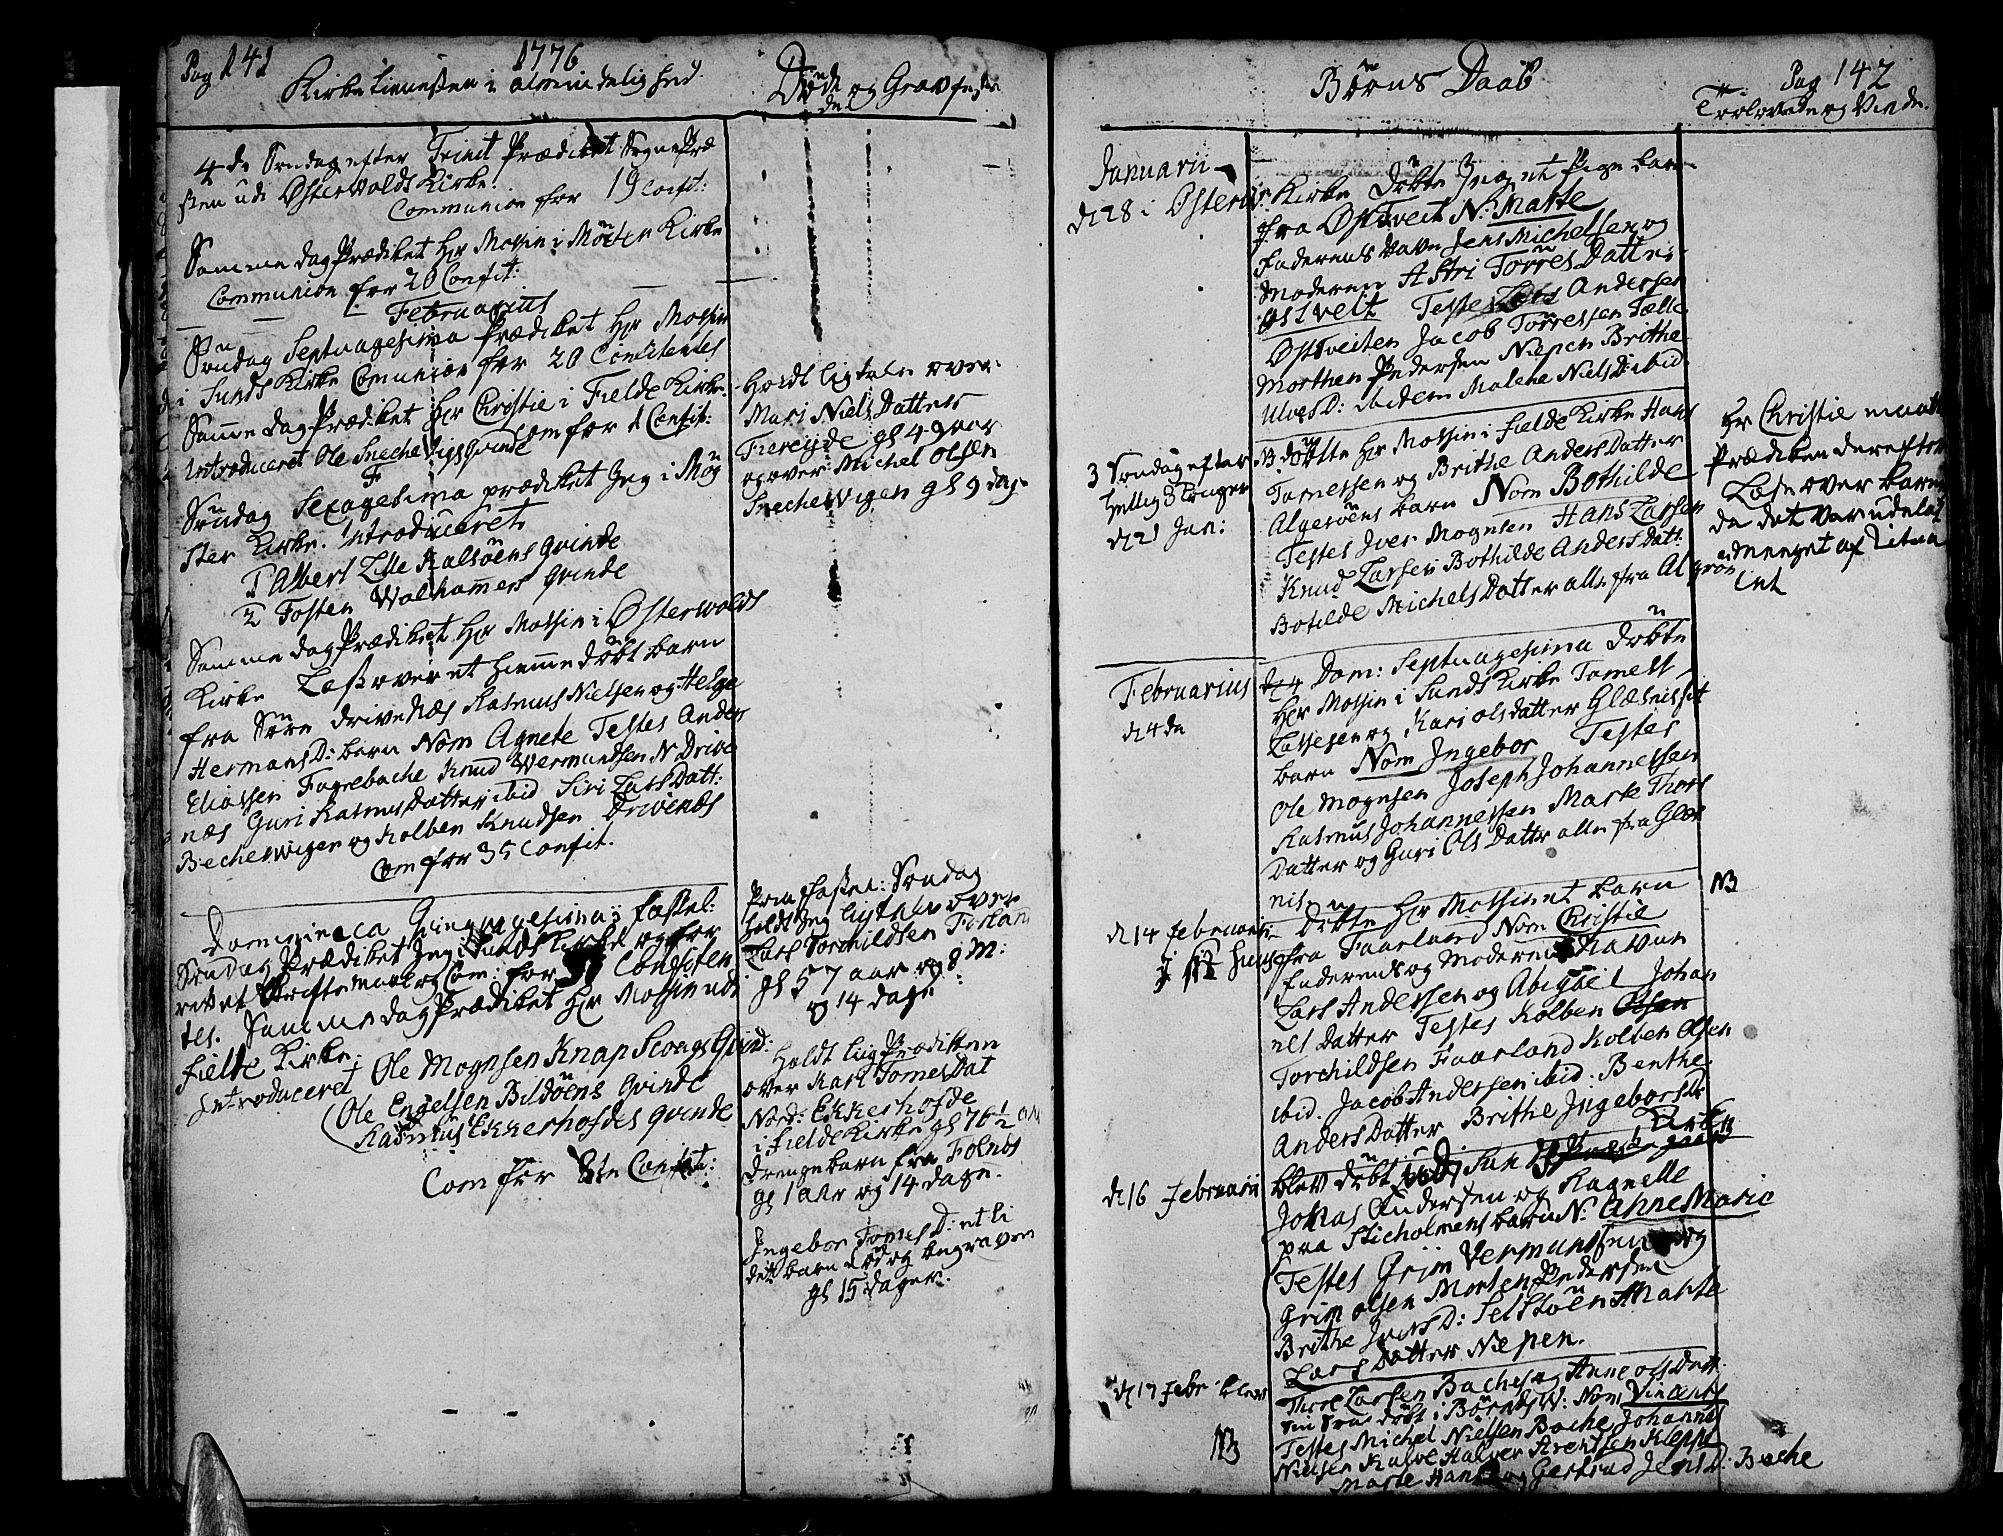 Pag 141
1776
Kirke tienesten i almindelighed.
Døde og Gravfeste
4de Søndag efter Trinit Prædiket Sogne Præ
sten udi Østerwolds Kirke.
Communion for 19 Confit:
Samme dag Prædiket Hr Mossin i Møster Kirke
Communion for 20 Confit:
Februarius
Søndag Septuagesima Prædiket Hr Mossin
i Sunds Kirke Comunion for 20 Confitentes
Samme dag Prædiket Hr Christie i Fielde Kirke.
Introduceret Ole Snechevigs Qvinde Com for Confit:
Søndag Sexagesima prædiket Jeg i Møg
ster Kirke. Introduceret
1 Albert Lille Kalsøens Qvinde
2 Tosten Walhammers Qvinde
Samme dag Prædiket Hr Mossin i Østerwolds
Kirke Læst over et hiemmedøbt barn
fra Søre Drivenæs Rasmus Nielsen og Helge
Hermans D: barn Nom Agnete Testes Anders
Eliassen Fagrebache Knud Wermundsen N Drive
næs Guri Rasmus Datter ibid Siri Lars Datt:
Bechevigen og Kolben Knudsen Drivenæs
Com for 35 Confit.
Dominica Quinquagesima: fastel:
Søndag Prædiket Jeg i Sunds Kirke og for
rettet Skriftemaal og Com: for Confiten
tes. Samme dag Prædiket Hr Mossin udi
Fielde Kirke.
Introduceret Ole Mognsen Knapscougs Qvind:
Ole Engelsen Bildøens Qvinde
Rasmus Ekkerhofdes Qvinde
Com for Confit:
Holdt ligtale over
Mari Niels Datter
Tereide gl 49 aar
og over Michel Olsen
Snechevigen gl 9 dage
Søndag
holdt Jeg ligtale over
Lars Torchildsen Forland
gl 57 aar og 8 M:
og 14 dage
Holdt liig Prædiken
over Kari Tomes Dat
Nord: Ekkerhofde
i Fielde Kirke gl 76½ aar
Drengebarn fra Folnes
gl 1 aar og 14 dage.
Ingebor Tomes D: et li
det barn død og begraven
gl 15 dager.
Børns Daab
Pag 142
Trolovede og Viede.
Januarii
d 28 i Østerv: Kirke Døbte Jeg et Pige barn
fra Østtveit N: Marte
Faderens Navn Jens Michelsen og
Moderen Astri Torres Datter
Østveit Testes Lars Andersen
Østtveiten Jacob Torressen Tælle
Morthen Pedersen Nepen Brithe
Ulves D: ibidem Malene Niels D ibid
3 Søndag efter
Hellig 3 Konger
d 21 Jan:
NB døbte Hr Mossin i Fielde Kirke Hans
Tomessen og Brithe Anders Datter
Algerøens barn Nom Bothilde
Testes Iver Mognsen Hans Larsen
Knud Larsen Bothilde Anders Datt:
Botilde Michels Datter alle fra Algrøen
Hr Christie maatte
Prædiken derefter
Læse over barnet
da det var udelat
meeget af Ritua
let
Februarius
d 4de
Dom: Septuagesima Døbte
Hr Mossin i Sunds Kirke Tomess
Lassesen og Kari Olsdatter Glæsnisset
barn Nom Ingebor Testes
Ole Mognsen Joseph Johannessen
Rasmus Johannessen Marte Thors
Datter og Guri Ols Datter alle fra Glæs
nis.
d 14 februarii
Døbte Hr Mossin et barn
fra Faarland Nom Christie
Faderens og Moderens Navn
Lars Andersen og Abigael Johan
nes Datter Testes Kolben Olsen
Torchildsen Faarland Kolben Olsen
ibid. Jacob Andersen ibid: Benthe
Anders Datter Brithe Ingebors D:
NB
d 16 Februarii
blev døbt udi Sun
Jonas Andersen og Ragnelle
fra Sticholmens barn N: Anne Marie
Testes Grim Vermundsen og
Grim Olsen Morten Pedersen
Brithe Ivers D: Selstøen Marite
Lars Datter Nepen.
d 17 Febr: blev
NB
Thore Larsen Baches og Anne Ols Datt:
døbt i Børnes W: Nom Vincents
Testes Michel Nielsen Bache Johannes
Nielsen Kalve Halver Arentsen Kleppe
Marte Hans og Gertrud Jens D: Bache